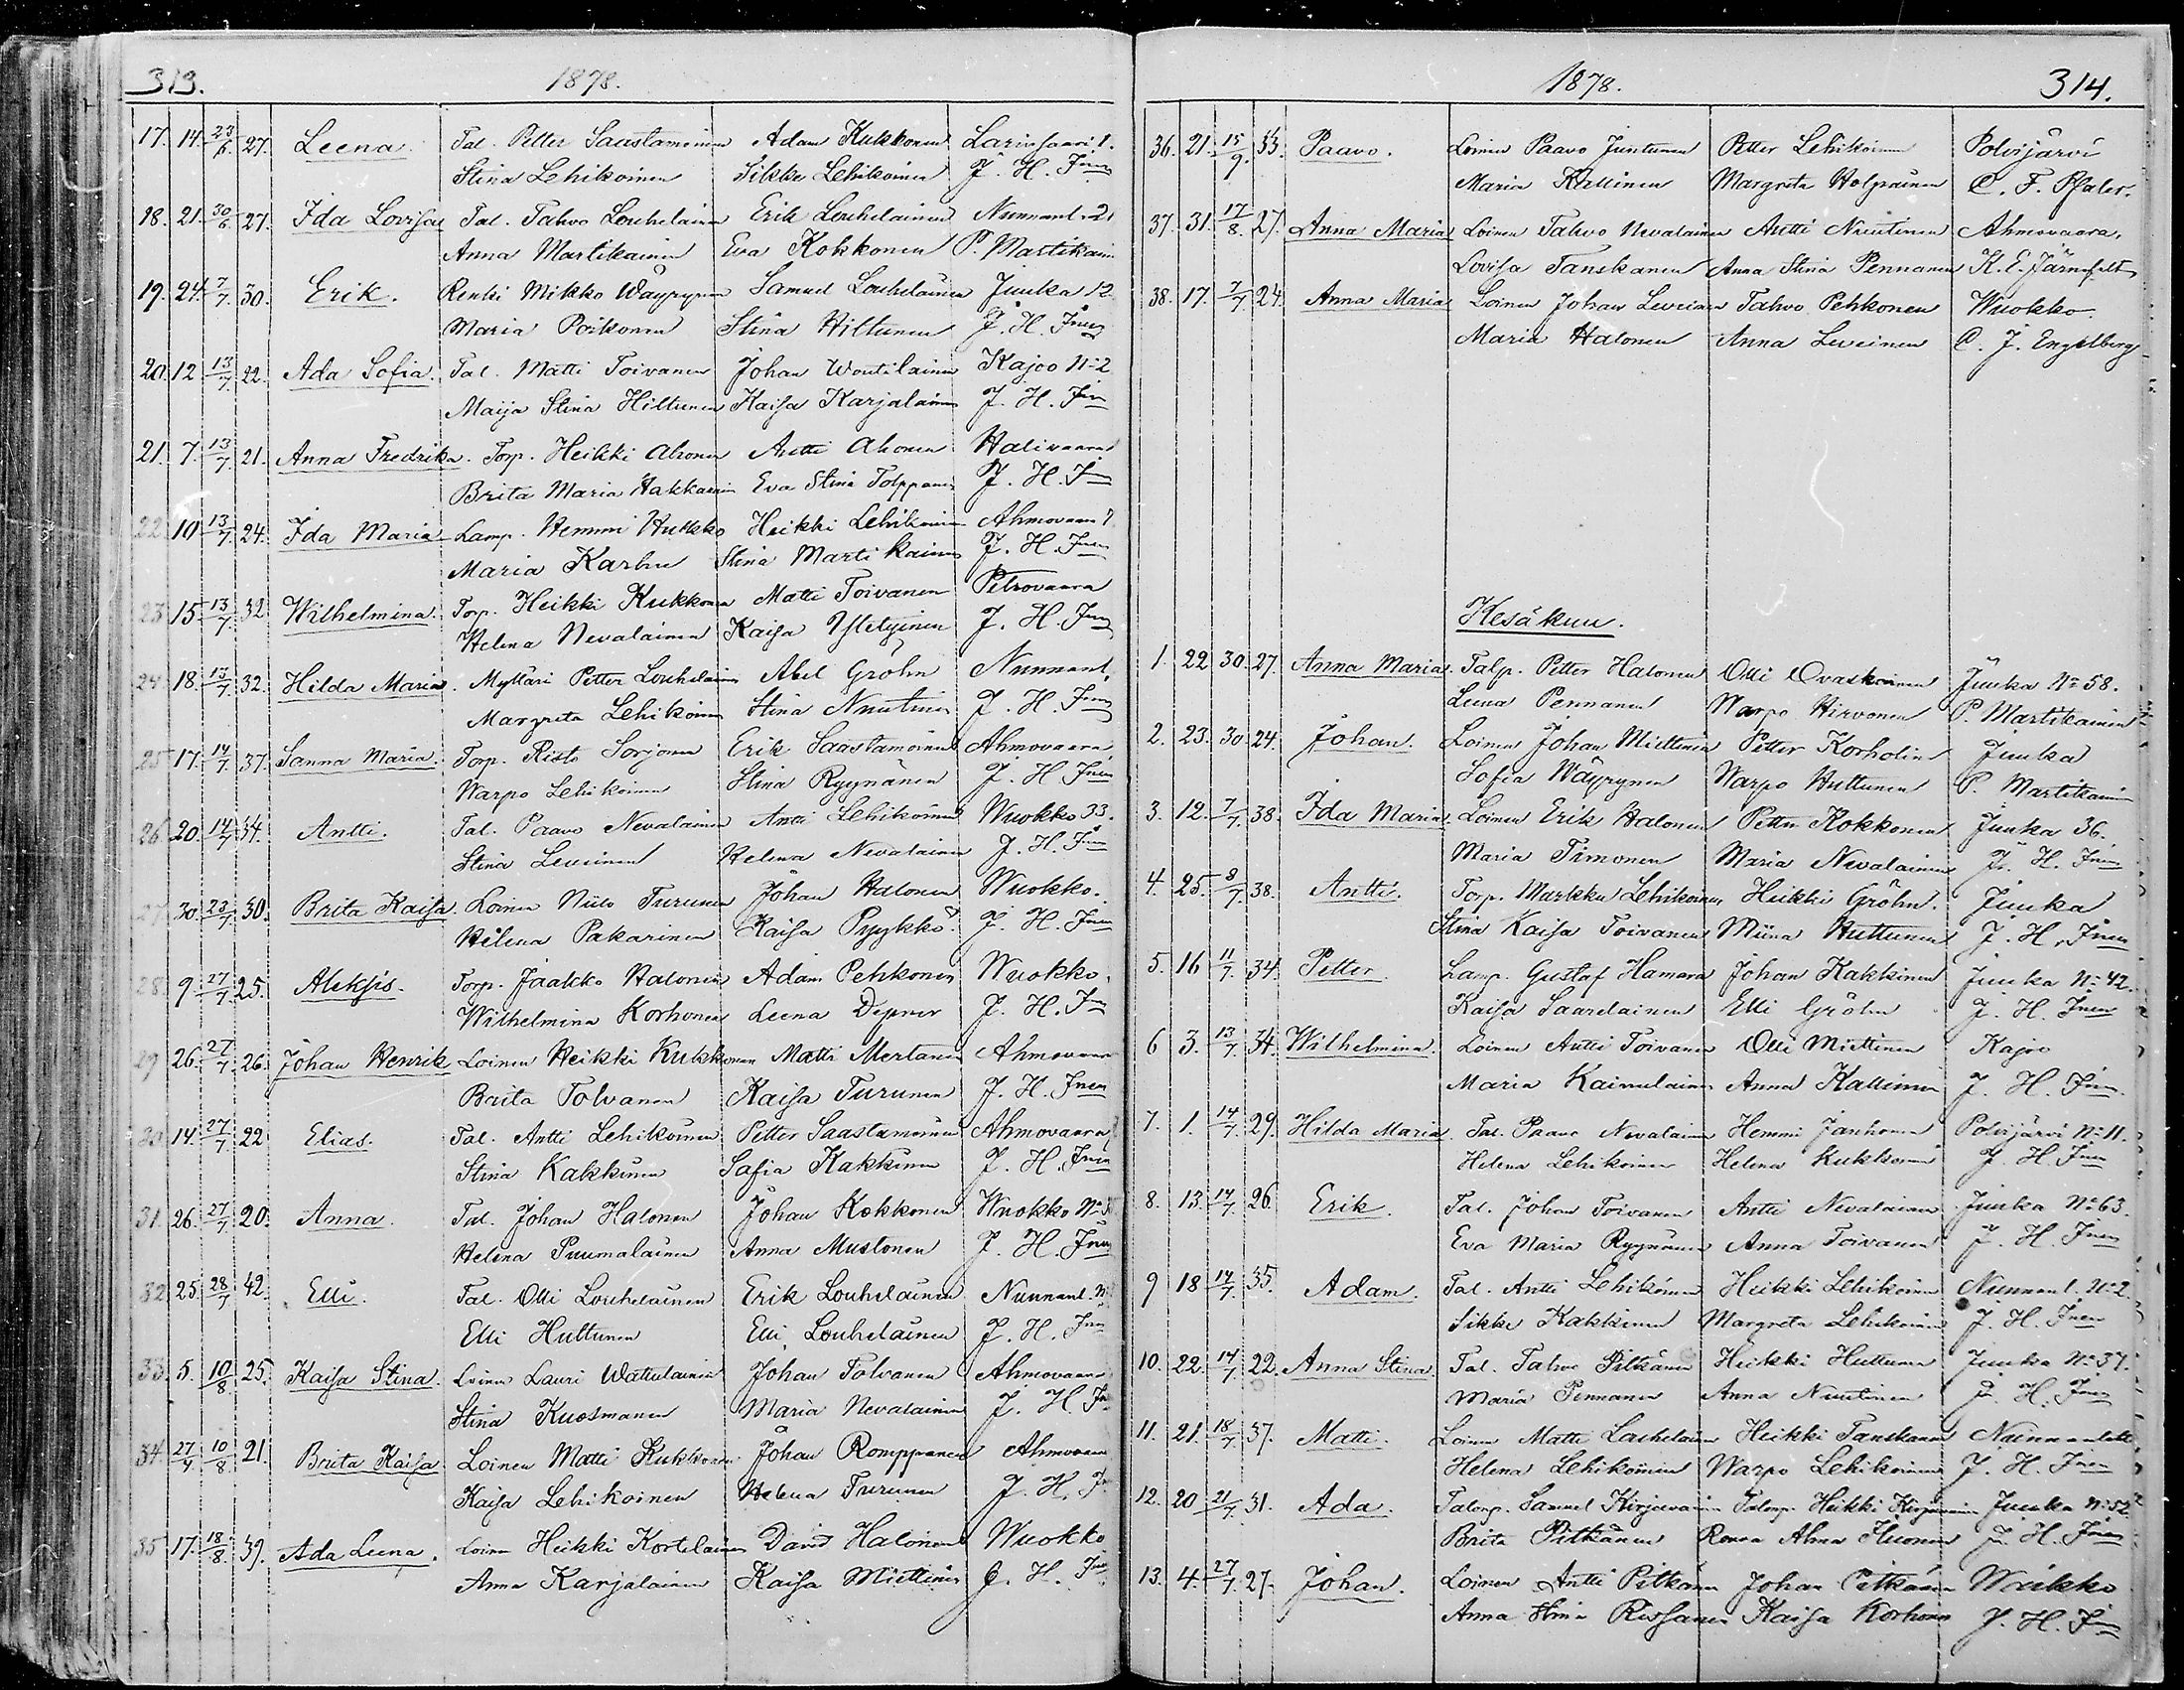 313. 1878.
17. 14. 23/6. 27. Leena. Tal. Petter Saastamoinen Adam Kukkonen Larinsaari 1.
Stina Lehikoinen Sikke Lehikoinen J. H. Inen
18. 21. 30/6. 27. Ida Lovisa Tal. Tahvo Louhelainen Erik Louhelainen Nunnanl. 2.
Anna Martikainen Eva Kokkonen P. Martikain
19. 24. 7/7. 30. Erik. Renki Mikko Wäyrynen Samuel Louhelainen Juuka 12
Maria Poikonen Stina Hiltunen J. H. Inen
20. 12 13/7. 22. Ada Sofia. Tal. Matti Toivanen Johan Woutilainen Kajoo No 2
Maija Stina Hiltunen Kaisa Karjalainen J. H. Inen
21. 7. 13/7. 21. Anna Fredrika. Torp. Heikki Ahonen Antti Ahonen Halivaara
Brita Maria Hakkarain Eva Stina Tolppanen J. H. Inen
22. 10 13/7. 24. Ida Maria Lamp. Hemmi Hukko Heikki Lehikoinen Ahmovaara 7
Maria Karhu Stina Martikainen J. H. Inen
23. 15 13/7. 32 Wilhelmina. Torp. Heikki Kukkonen Matti Toivanen Petrovaara
Helena Nevalainen Kaisa J. H. Inen
24. 18. 13/7. 32. Hilda Maria. Mylläri Petter Louhelainen Abel Gröhn Nunnanl.
Margreta Lehikoinen Stina Nuutinen J. H. Inen
25 17. 14/7. 37. Sanna Maria. Torp. Risto Sorjonen Erik Saastamoinen Ahmovaara
Warpo Lehikoinen Stina Ryynänen J. H. Inen
26. 20. 14/7. 34. Antti. Tal. Paavo Nevalainen Antti Lehikoinen Wuokko 33.
Stina Leveinen Helena Nevalainen J. H. Inen
27. 30. 23/7. 30. Brita Kaisa. Loinen Niilo Turunen Johan Halonen Wuokko.
Helena Pakarinen Kaisa Pyykkö. J. H. Inen
28. 9. 27/7. 25. Aleksis. Torp. Jaakko Halonen Adam Pehkonen Wuokko.
Wilhelmina Korhonen Leena Depner J. H. Inen
29 26. 27/7. 26. Johan Henrik Loinen Heikki Kukkonen Matti Mertanen Ahmovaara
Brita Tolvanen Kaisa Turunen J. H. Inen
30 14. 27/7. 22 Elias. Tal. Antti Lehikoinen Petter Saastamoinen Ahmovaara
Stina Kakkinen Sofia Kakkinen J. H. Inen
31. 26. 27/7. 20. Anna. Tal. Johan Halonen Johan Kokkonen Wuokko No
Helena Puumalainen Anna Mustonen J. H. Inen
32 25. 28/7. 42. Elli. Tal. Olli Louhelainen Erik Louhelainen Nunnanl. No
Elli Huttunen Elli Louhelainen J. H. Inen
33. 5. 10/8 25. Kaisa Stina. Loinen Lauri Watulainen Johan Tolvanen Ahmovaara
Stina Kuosmanen Maria Nevalainen J. H. In
34. 27/7 10/8 21. Brita Kaisa Loinen Matti Kukkonen Johan Romppanen Ahmovaara
Kaisa Lehikoinen Helena Turunen J. H. I
35 17. 18/8. 39. Ada Leena. Loinen Heikki Kortelainen David Halonen Wuokko
Anna Karjalainen Kaisa Miettinen J. H. Inen
1878. 314.
36. 21. 15/9. 33. Paavo. Loinen Paavo Juntunen Petter Lehikoinen Polvijärvi
Maria Kallinen Margreta Holopainen C. F. Pfaler.
37. 31. 17/8. 27. Anna Maria Loinen Tahvo Nevalainen Antti Nuutinen Ahmovaara.
Lovisa Tanskanen Anna Stina Pennanen K. E. Järnefelt
38. 17. 7/7 24. Anna Maria Loinen Johan Leveinen Tahvo Pehkonen Wuokko.
Maria Halonen Anna Leveinen C. J. Engelberg
Kesäkuu.
1. 22 30. 27. Anna Maria. Talp. Petter Halonen Olli Ovaskainen Juuka No 58.
Leena Pennanen Warpo Hirvonen P. Martikainen
2. 23. 30 24. Johan. Loinen Johan Miettinen Petter Korholin Juuka
Sofia Wäyrynen Warpo Huttunen P. Martikainen
3. 12. 7/7. 38. Ida Maria. Loinen Erik Halonen Petter Kokkonen Juuka 36.
Maria Timonen Maria Nevalainen J. H. Inen
4. 25. 8/7. 38. Antti. Torp. Markku Lehikoinen Heikki Gröhn. Juuka
Stina Kaisa Toivanen Miina Huttunen J. H. Inen
5. 16 11/7. 34. Petter. Lamp. Gustaf Hamara Johan Kakkinen Juuka No 42.
Kaisa Saarelainen Elli Gröhn J. H. Inen
6 3. 13/7. 34. Wilhelmina. Loinen Antti Toivanen Olli Miettinen Kajoo
Maria Kainulainen Anna Kallinen J. H. Inen
7. 1. 14/7. 29. Hilda Maria. Tal. Paavo Nevalainen Hemmi Janhonen Polvijärvi No 11.
Helena Lehikoinen Helena Kukkonen J. H. Inen
8. 13. 14/7. 26. Erik. Tal. Johan Toivanen Antti Nevalainen Juuka No 63.
Eva Maria Ryynänen Anna Toivanen J. H. Inen
9 18 14/7. 35. Adam. Tal. Antti Lehikoinen Heikki Lehikoinen Nunnanl. No 2.
Sikke Kakkinen Margreta Lehikoinen J. H. Inen
10. 22. 14/7. 22. Anna Stina. Tal. Tahvo Pitkänen Heikki Huttunen Juuka No 37.
Maria Pennanen Anna Nuutinen J. H. Inen
11. 21. 18/7. 37. Matti. Loinen Matti Louhelainen Heikki Tanskanen
Helena Lehikoinen Warpo Lehikoinen J. H. Inen
12. 20 21/7. 31. Ada. Talonp. Samuel Kirjavainen Talonp. Heikki Kirjavainen Juuka No 52
Brita Pitkänen Rouva Alma Huonen J. H. Inen
13. 4. 27/7. 27. Johan. Loinen Antti Pitkänen Johan Pitkänen
Anna Stina Rissanen Kaisa Korhonen J. H. Inen